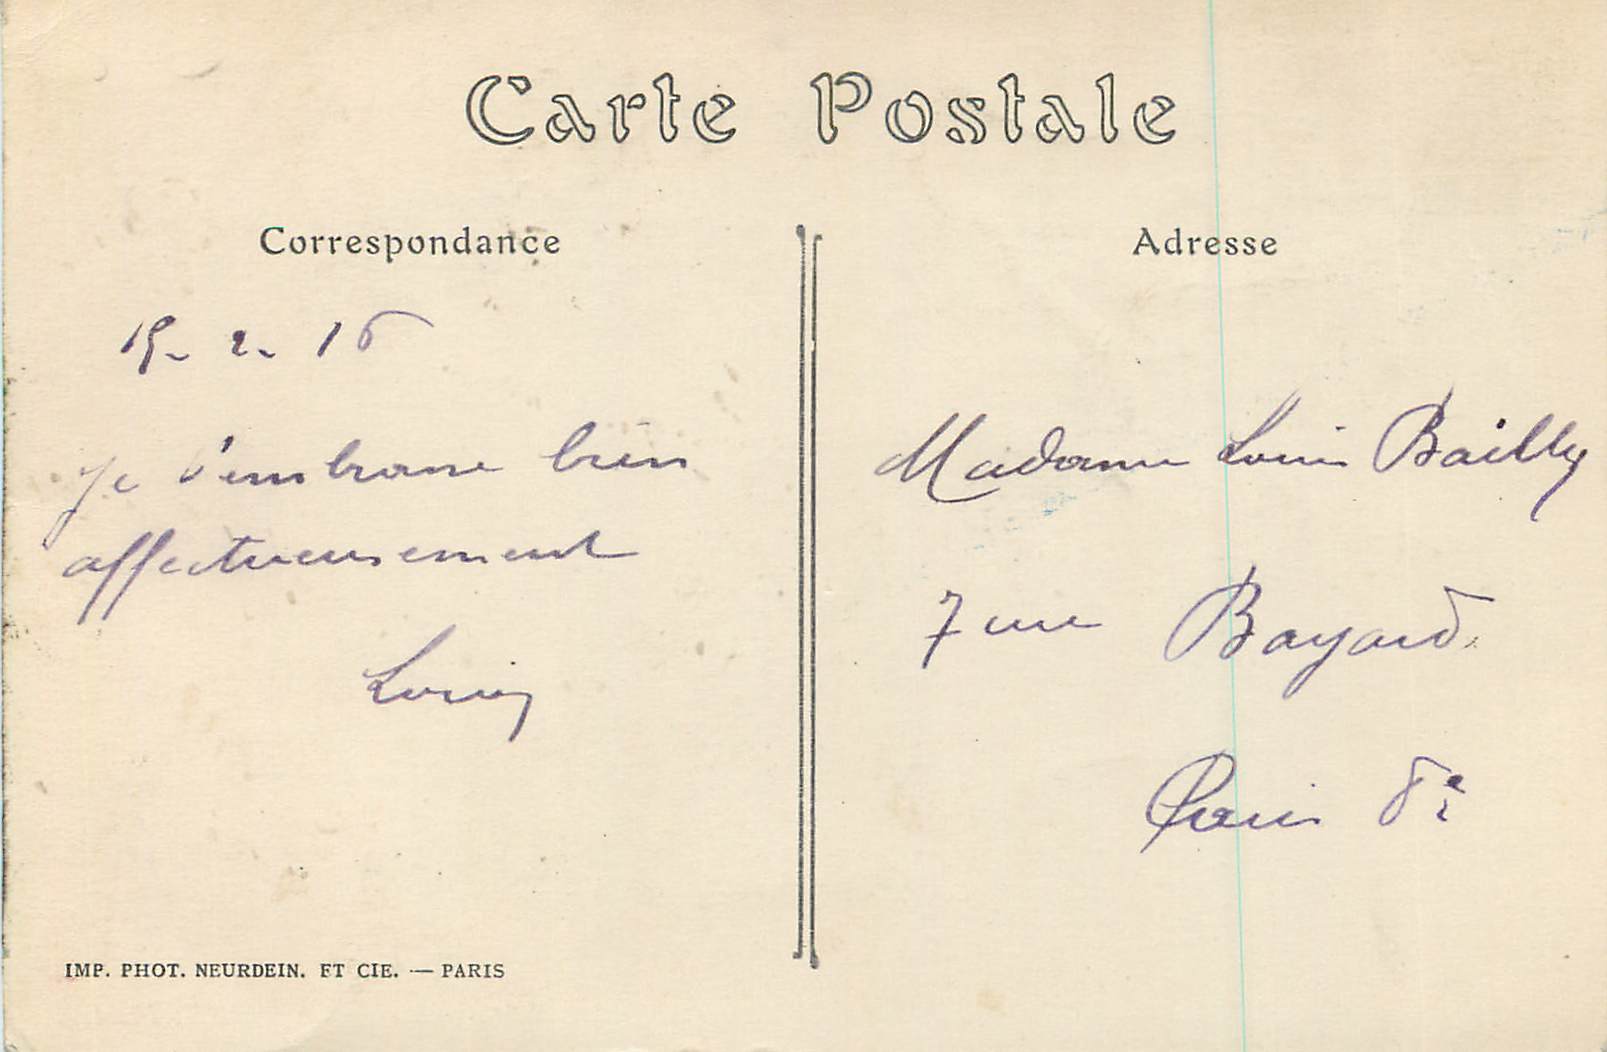 Carte Postale
Correspondance
15-2-16
Je t'embrasse bien
affectueusement
Louis
IMP. PHOT. NEURDEIN. ET CIE. — PARIS
Adresse
Madame Louis Bailly
7 rue Bayard
Paris 8e